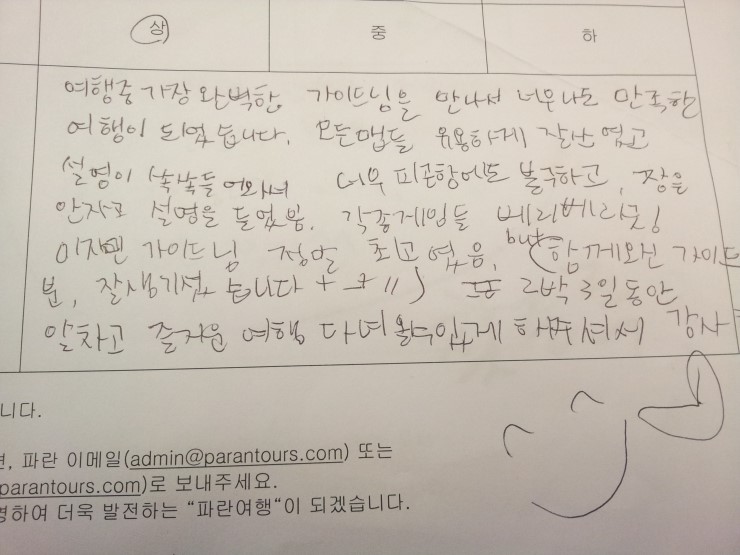 상 중 하
여행중 가장 완벽한 가이드님을 만나서 너무나도 만족한
여행이 되었습니다. 모든맵들 유용하게 잘난 였고
설명이 쏙쏙들어와서 너무 피곤함에도 불구하고, 잠을
안자고 설명을 들었음. 각종게임들 베리베리굿!
이지맨 가이드님 정말 최고였음, but (함께오신 가이드
분, 잘생기셨습니다 ) 또 2박3일동안
알차고 즐거운 여행 다녀올수있게 해주셔서 감사
니다.
면, 파란 이메일(admin@parantours.com) 또는
parantours.com)로 보내주세요.
영하여 더욱 발전하는 “파란여행“이 되겠습니다.